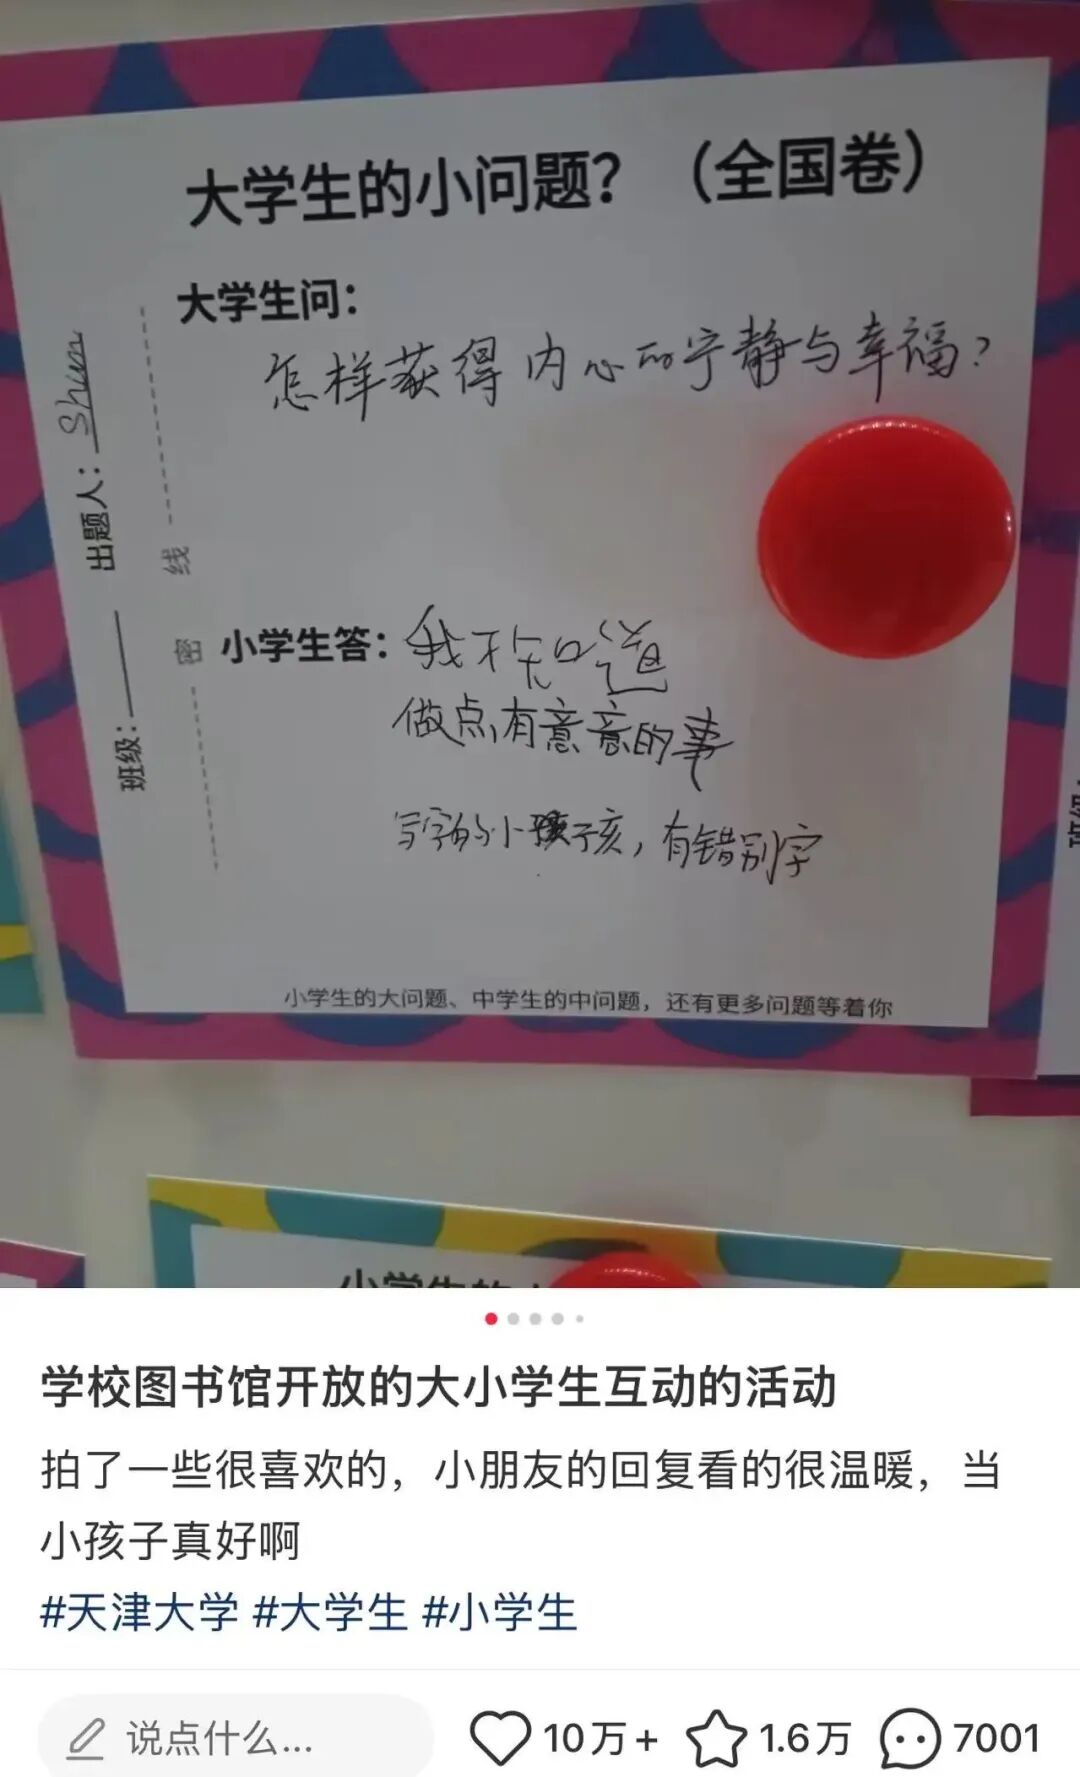 大学生的小问题？（全国卷）
大学生问：
怎样获得内心的宁静与幸福？
出题人：Shun
班级：
密 线
小学生答：我不知道
做点有意意的事
写字的小孩子亥，有错别字
小学生的大问题、中学生的中问题，还有更多问题等着你
学校图书馆开放的大小学生互动的活动
拍了一些很喜欢的，小朋友的回复看的很温暖，当
小孩子真好啊
#天津大学 #大学生 #小学生
说点什么...
10万+
1.6万
7001